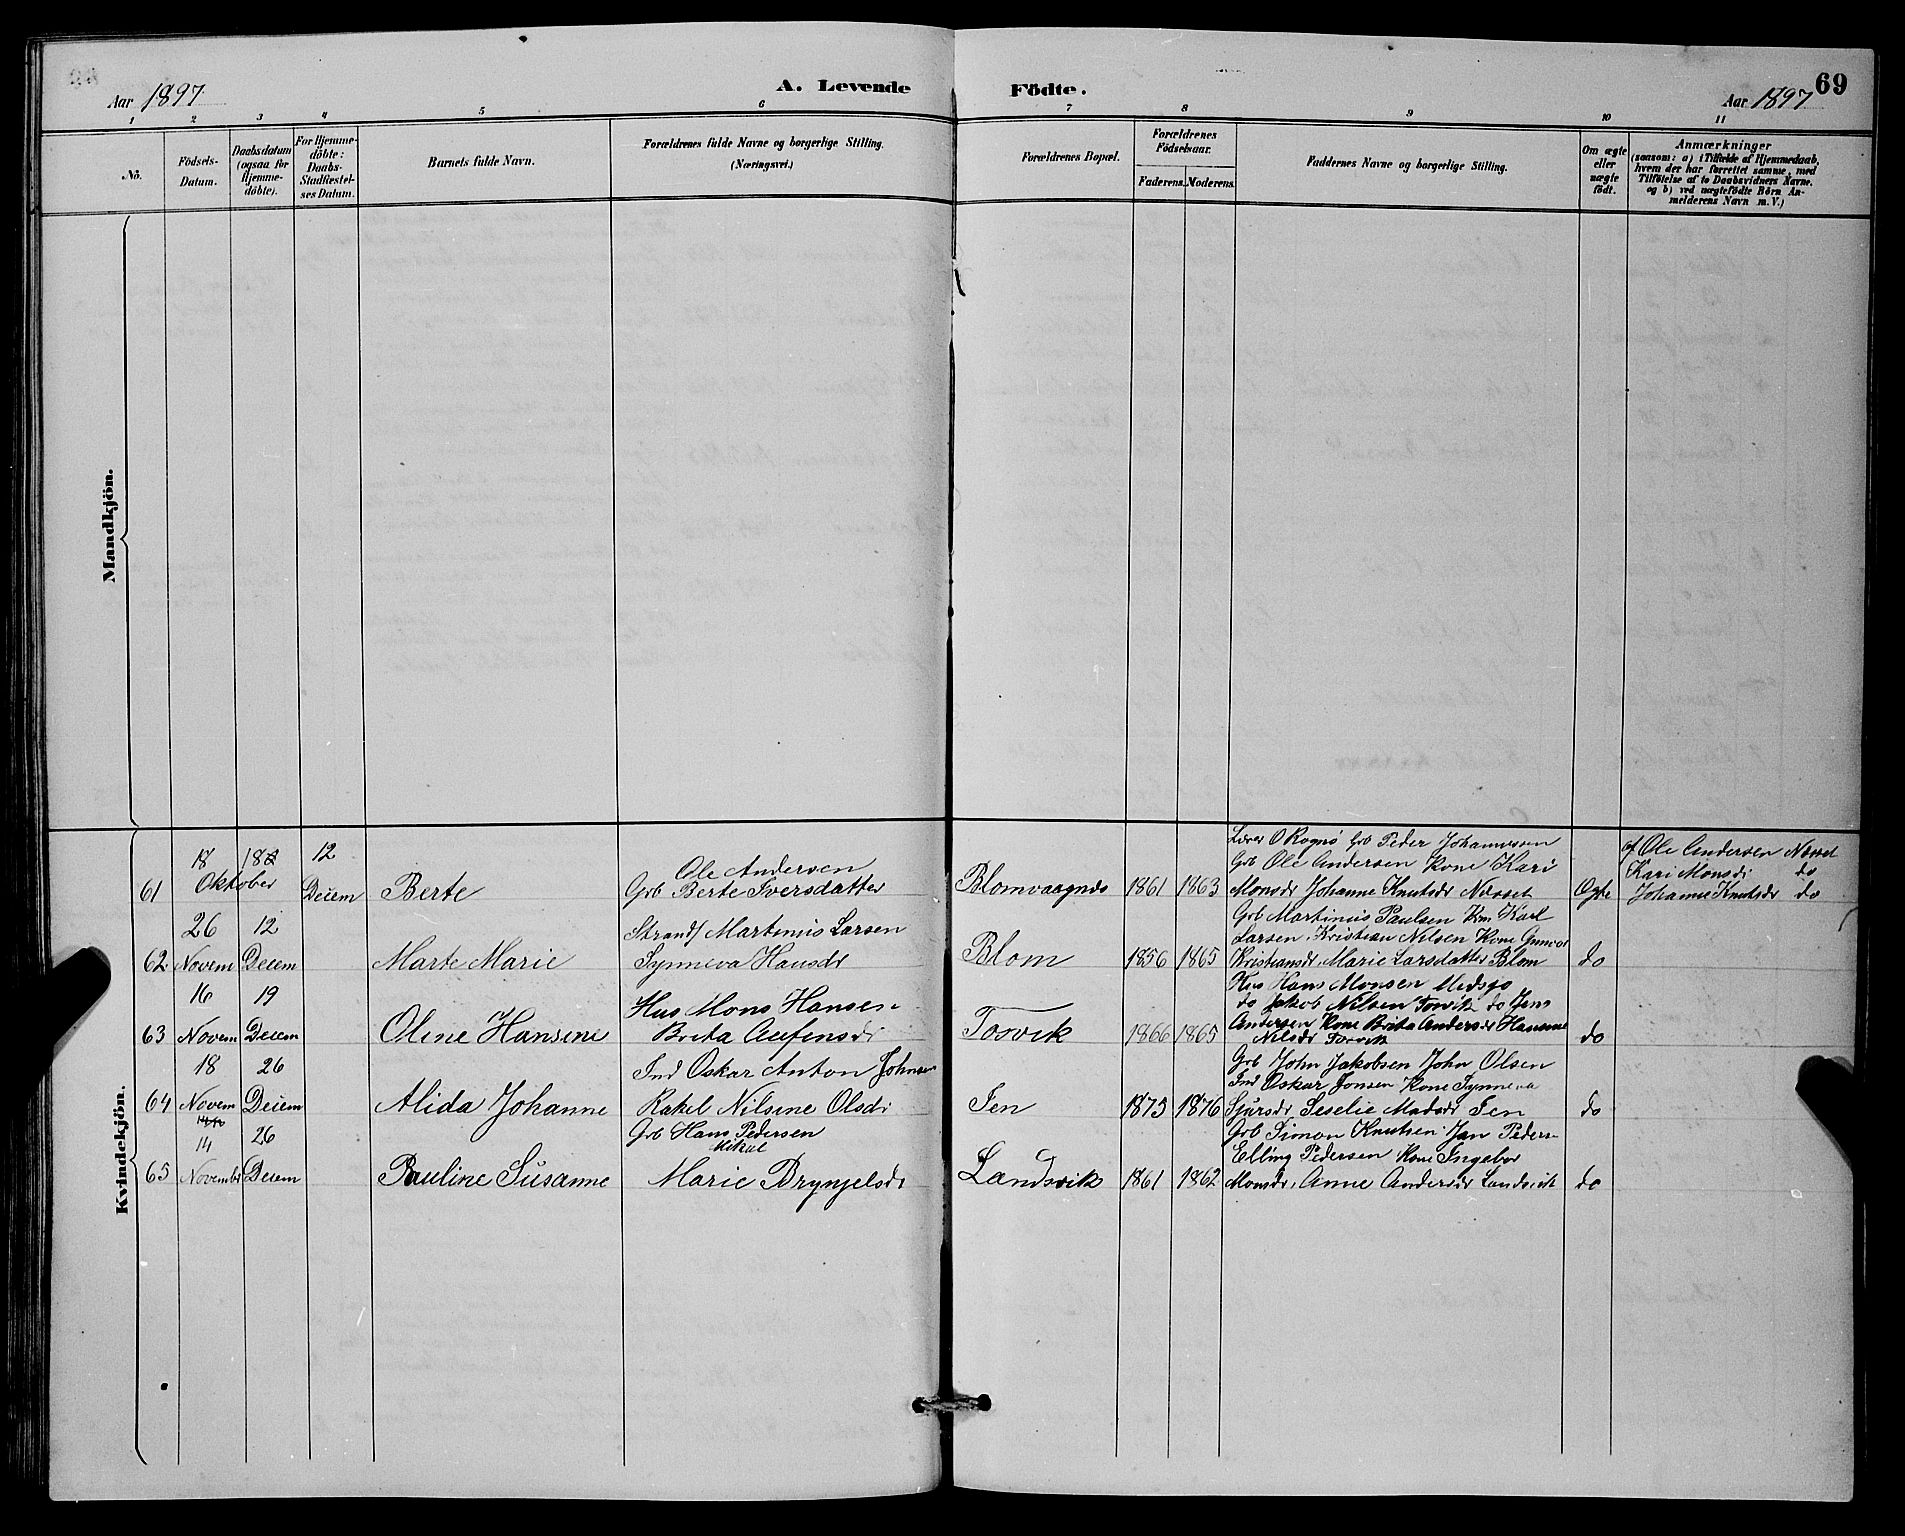 Aar 1897
A. Levende
Födte.
Aar 1897
69
1
2
3
4
5
6
7
8
9
10
11
No.
Födsels-
Datum.
Daabsdatum
(ogsaa for
Hjemme-
döbte).
For Hjemme-
döbte:
Daabs-
Stadfæstel-
ses Datum.
Barnets fulde Navn.
Forældrenes fulde Navne og borgerlige Stilling.
(Næringsvei.)
Forældrenes Bopæl.
Forældrenes
Födselsaar.
Faderens.
Moderens.
Faddernes Navne og borgerlige Stilling.
Om ægte
eller
uægte
födt.
Anmærkninger
(saasom: a) i Tilfælde af Hjemmedaab,
hvem der har forrettet samme, med
Tilföielse af to Daabsvidners Navne,
og b) ved uægtefödte Börn An-
melderens Navn m. V.)
Mandkjön.
Kvindekjön.
61
18
Oktober
18
12
Decem
Berte
Ole Andersen
Grb Berte Iversdatter
Blomvaagnæs
1861
1863
Lærer O Rognö Grb Peder Johannesen
Grb Ole Andersen Kone Kari
Monsdr Johanne Knutsdr Nesset
Ægte
af Ole Andersen Næsset
Kari Monsdr do
Johanne Knutsdr do
62
26
Novem
12
Decem
Marte Marie
Strands Martinus Larsen
Synneva Hansdr
Blom
1856
1865
Grb Martinus Paulsen Km Karl
Larsen, Kristian Nilsen Kone Gunvor
Kristiansdr, Marie Larsdatter Blom
do
63
16
Novem
19
Decem
Oline Hansine
Hus Mons Hansen
Brita Aufinsdr
Tosvik
1866
1865
Hus Hans Monsen Midsjo
do Jakob Nilsen Tosvik do Jens
Andersen Kone Brita Andersdr Hansine
Nilsdr Tosvik
do
64
18
Novem
26
Decem
Alida Johanne
Ind Oskar Anton Johnsen
Rakel Nilsine Olsdr
Ien
1873
1876
Grb John Jakobsen John Olsen
Ind Oskar Jonsen Kone Synneva
Sjursdr Seselie Madsdr Ien
do
65
14
November
26
Decem
Pauline Susanne
Grb Hans Pedersen
Mikal
Marie Brynjelsdr
Landsvik
1861
1862
Grb Simon Knutsen Jan Peders
Elling Pedersen Kone Ingebor
Monsdr, Anne Andersdr Landsvik
do